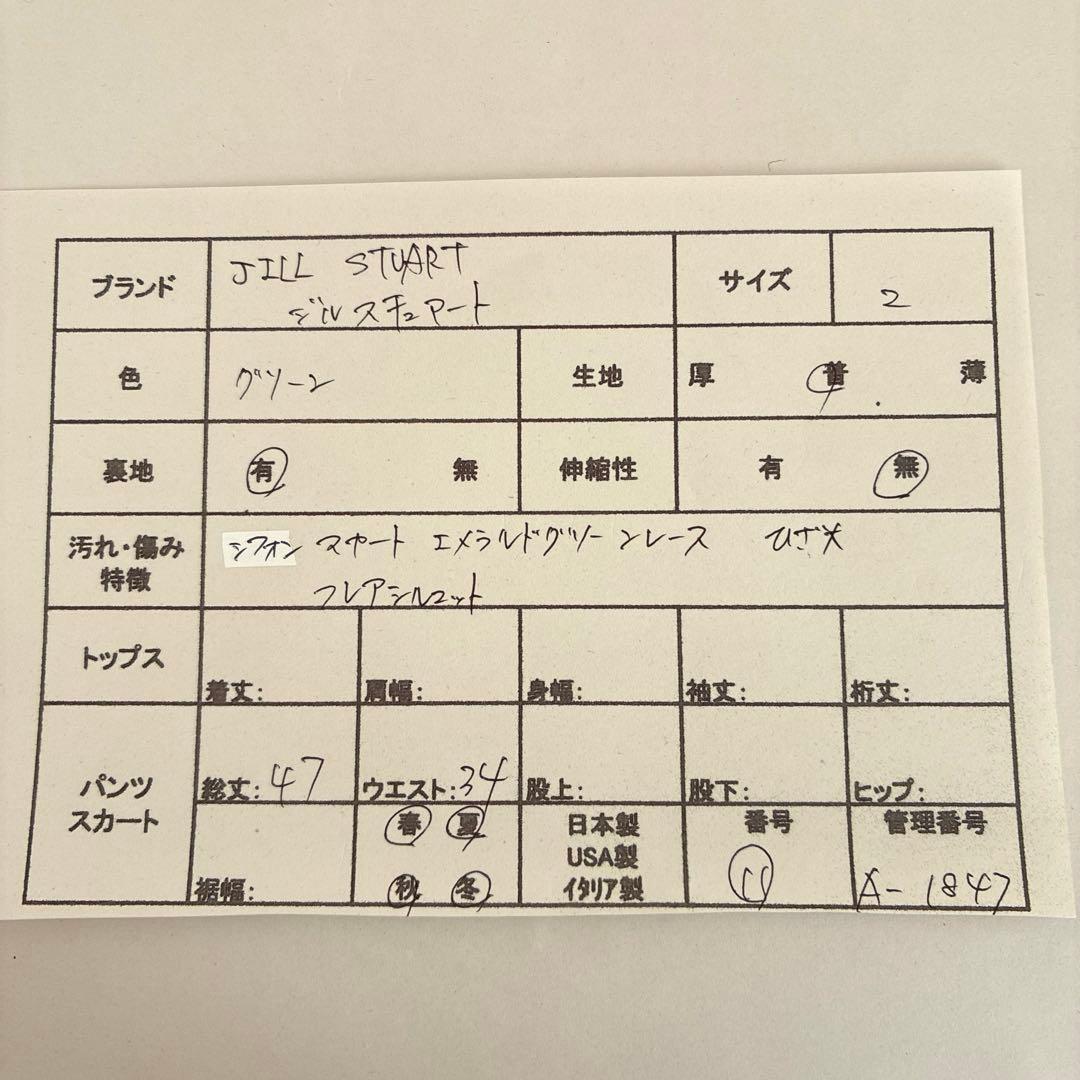 ブランド JILL STUART サイズ 2
ジルスチュアート
色 グリーン 生地 厚 普 薄
裏地 有 無 伸縮性 有 無
汚れ・傷み シフォン スカート エメラルドグリーンレース ひざ丈
特徴 フレアシルエット
トップス 着丈: 肩幅: 身幅: 袖丈: 裄丈:
パンツ 総丈:47 ウエスト:34 股上: 股下: ヒップ:
スカート 春 夏 日本製 番号 管理番号
USA製
裾幅: 秋 冬 イタリア製 11 A-1847